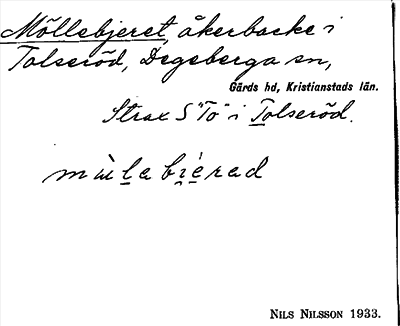 Möllebjeret, åkerbacke i
Tolseröd, Degeberga sn,
Gärds hd, Kristianstads län.
Strax S "To" i Tolseröd.
mùlabiérad
NILS NILSSON 1933.